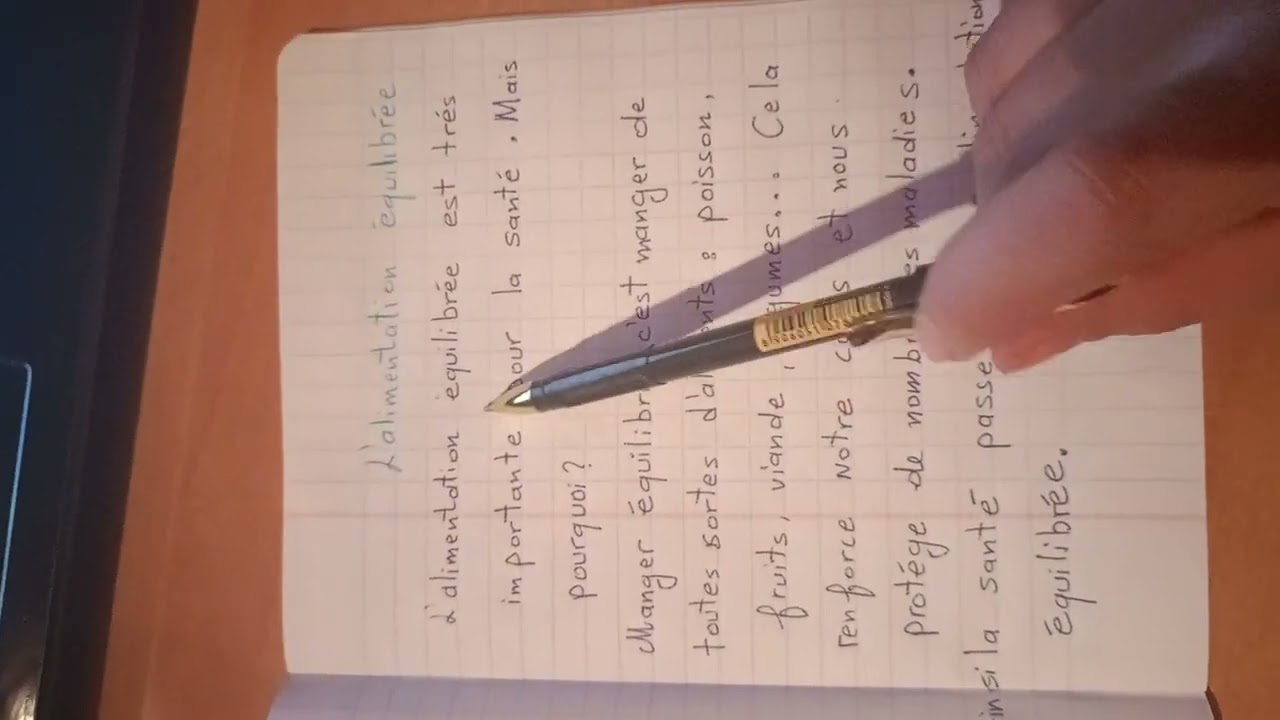 L'alimentation équilibrée
L'alimentation équilibrée est trés
importante pour la santé. Mais
pourquoi?
Manger équilibré c'est manger de
toutes sortes d'aliments : poisson,
fruits, viande, légumes... Cela
renforce notre corps et nous
protége de nombreuses maladies.
insi la santé passe
équilibrée.